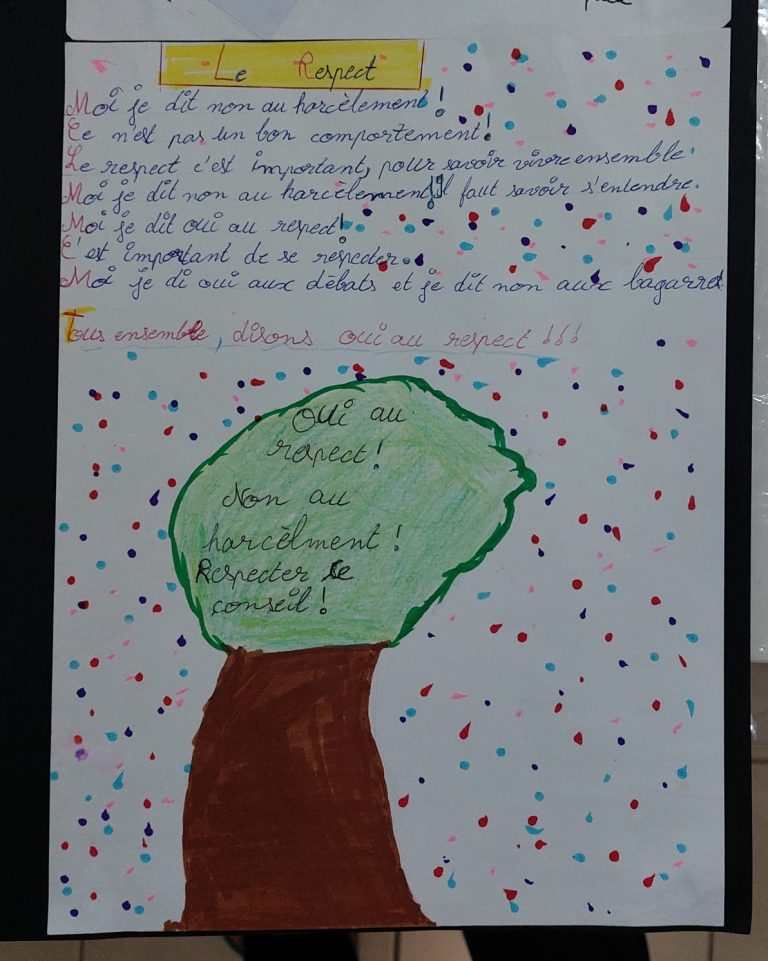 Le Respect
Moi je dit non au harcèlement !
Ce n'est pas un bon comportement !
Le respect c'est important, pour savoir vivre ensemble.
Moi je dit non au harcèlement ! Il faut savoir s'entendre.
Moi je dit oui au respect !
C'est important de se respecter.
Moi je di oui aux débats et je dit non aux bagarre!
Tous ensemble, disons oui au respect !!!
Oui au
respect !
Non au
harcèlment !
Respecter le
conseil !